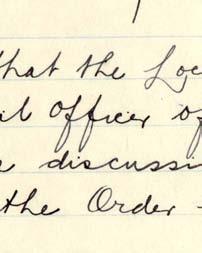 that the Loc
il Officer of
e discussi
the Order